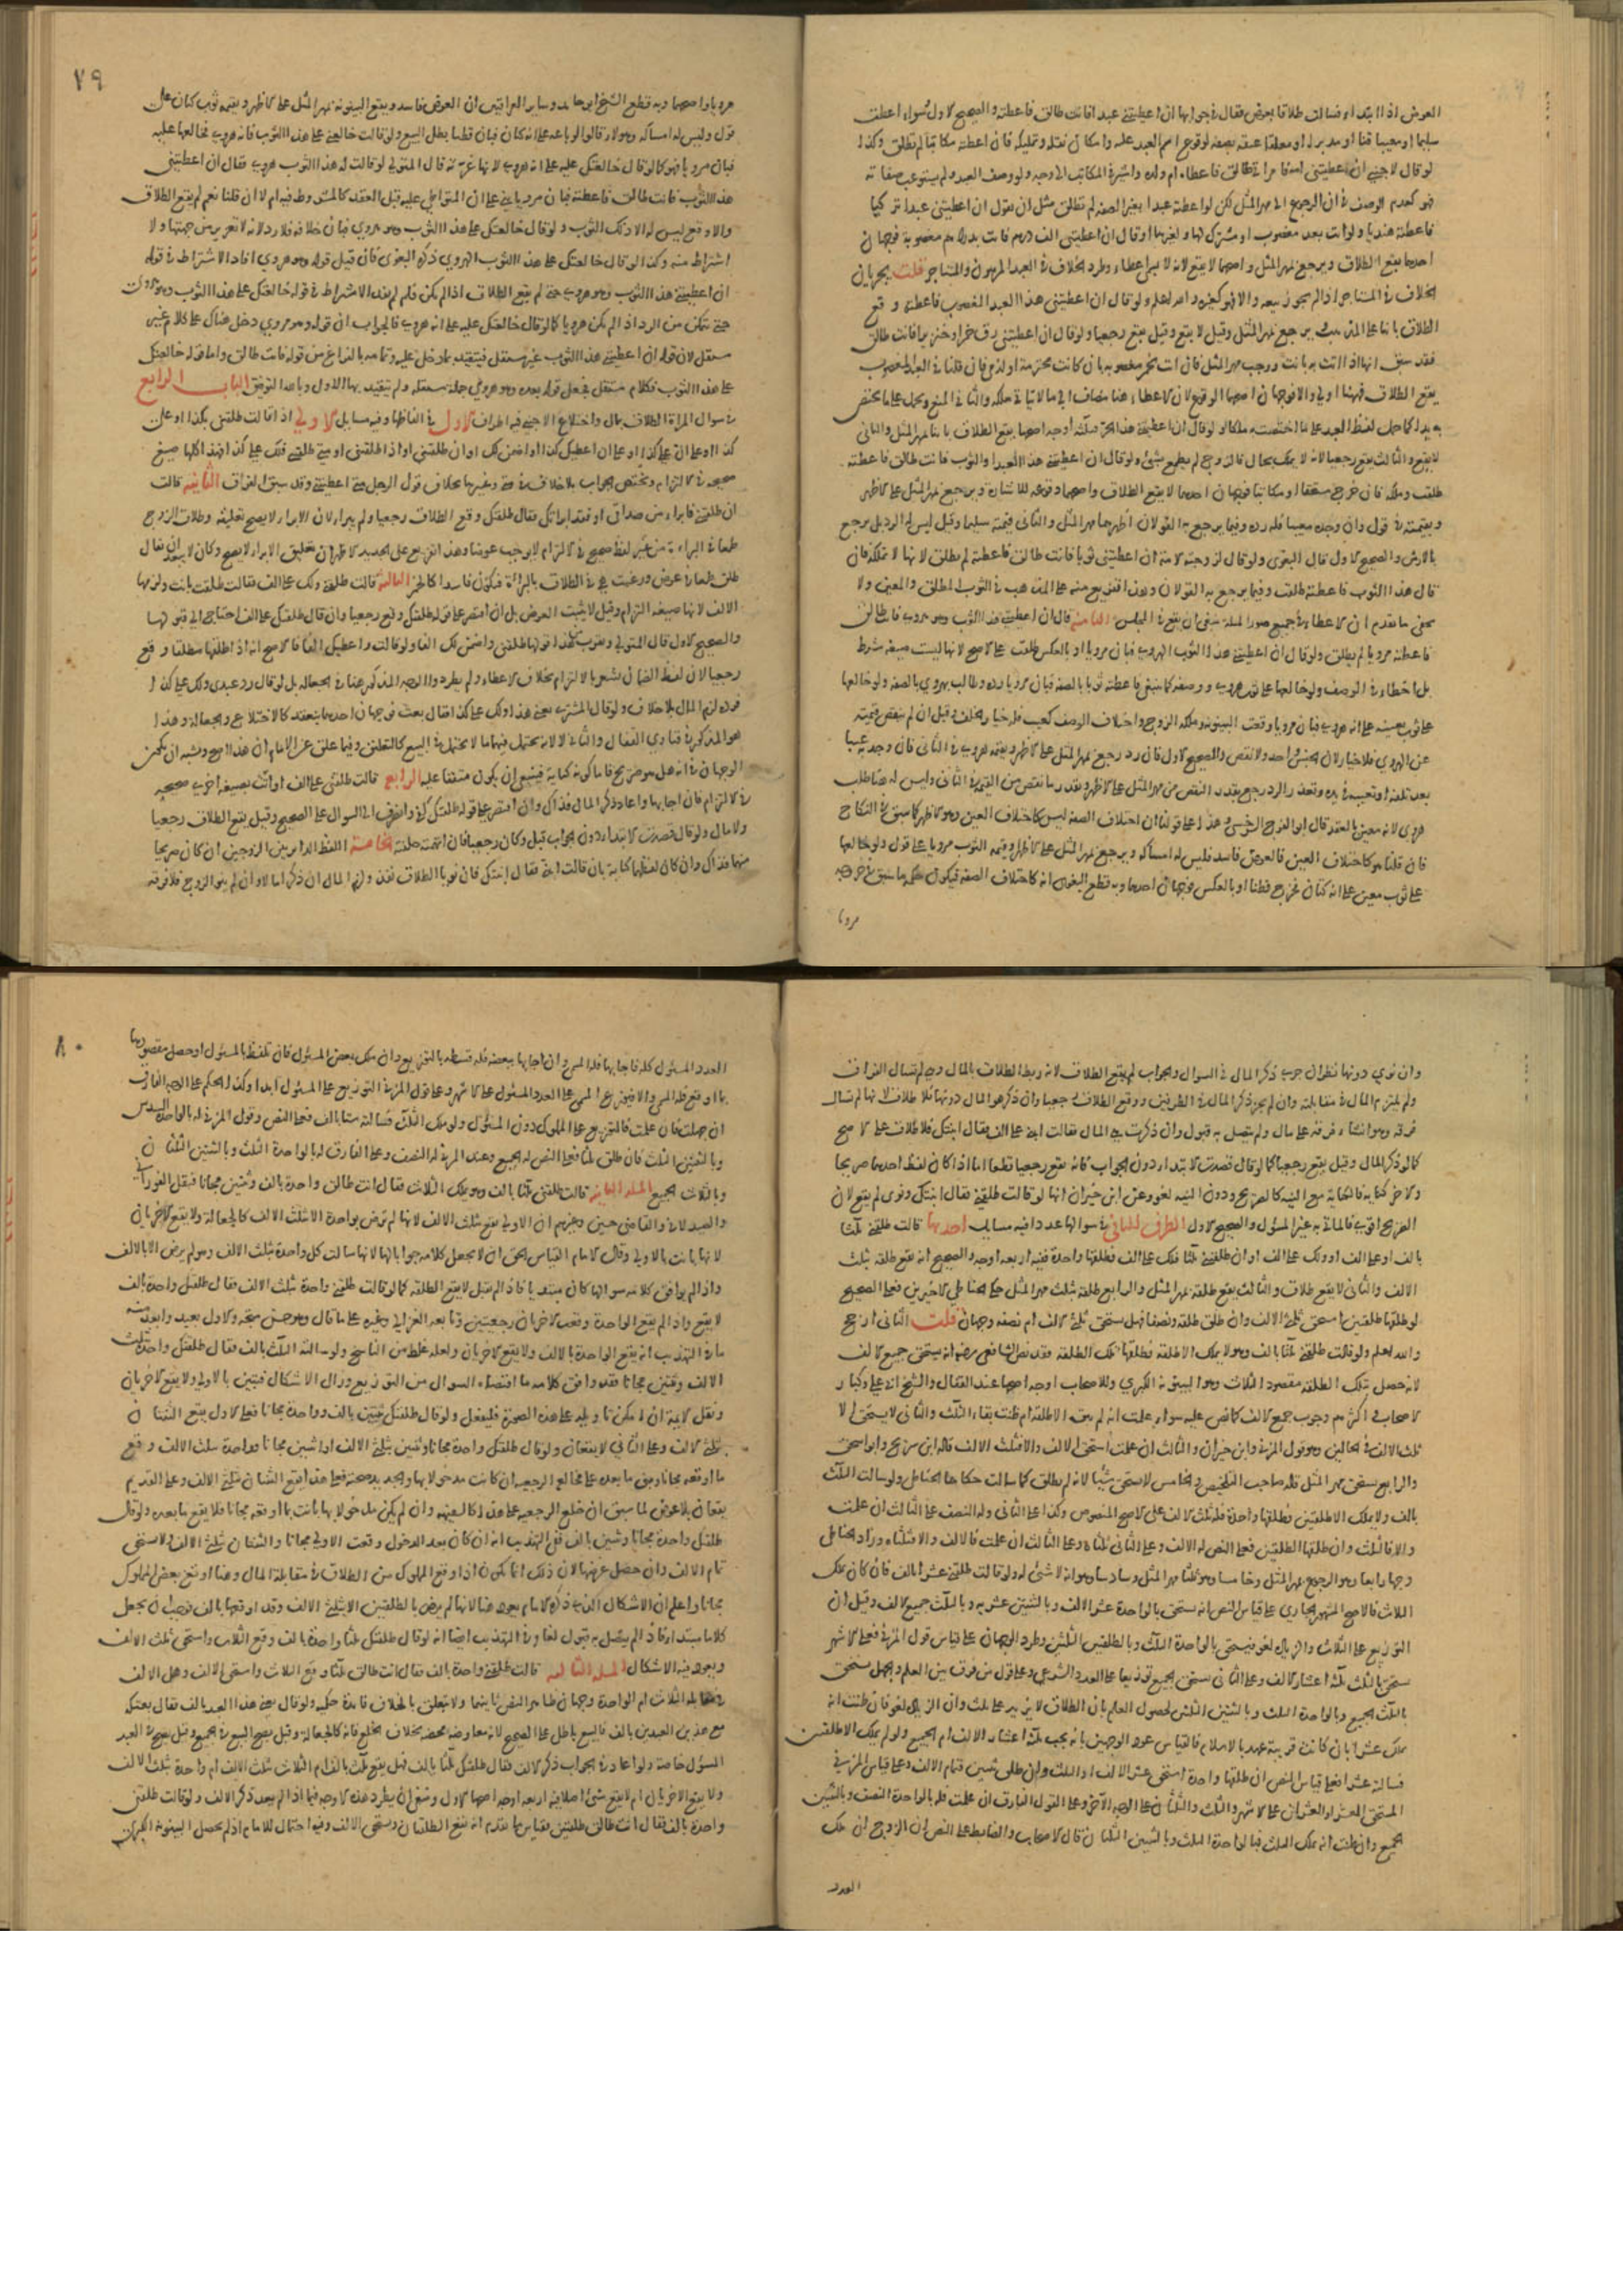 العوض اذا ابتداء فسالت طلاقا بعوض فقال في جوابها ان اعطيتني عبدا فانت طالق فاعطته والصحيح الاول سواء اعطت
سليما او معيبا قنا او مدبر له او معلقا عتقه بصفة لوقوع اسم العبد عليه وامكان نقله وتمليكه فان اعطته مكاتبا لم تطلق وكذا لو
لو قال لاجنبي ان اعطيتني امة فامراتي طالق فاعطاه ام ولد واشترى المكاتب الاوجه ولو وصف العبد ولم يستوعب صفاته
فهو كعدم الوصف في ان الرجوع الى مهر المثل لكن لو اعطته عبدا بغير الصفة لم تطلق مثل ان يقول ان اعطيتني عبدا تركيا
فاعطته هنديا ولو اتت بعبد مغصوب او مشترك لها ولغيرها او قال ان اعطيتني الف درهم فاتت بدراهم مغصوبة فوجهان
احدهما يقع الطلاق ويرجع بمهر المثل واصحهما لا يقع لانه لا يسمى اعطاء وطرد الخلاف في العبد المرهون والمستاجر قلت يجريان
الخلاف في المستاجر اذا لم يجوز بيعه والا فهو كغيره والله اعلم ولو قال ان اعطيتني هذا العبد المغصوب فاعطته وقع
الطلاق بائنا على المذهب ويرجع بمهر المثل وقيل لا يقع وقيل يقع رجعيا ولو قال ان اعطيتني زق خمر او خنزيرا فانت طالق
فقد سبق انها اذا اتت به بانت ووجب مهر المثل فان اتت بخمر مغصوبة بان كانت محترمة او لذمي فان قلنا في العبد المغصوب
يقع الطلاق فهنا اولى والا فوجهان احدهما الوقوع لان الاعطاء هنا مضاف الى ما لا يتاتى ملكه والثاني المنع ويحمل على ما يختص
به يدا كما حمل لفظ العبد على ما اختصت به ملكا ولو قال ان اعطيتني هذا الحر فثلاثة اوجه اصحها يقع الطلاق بائنا بمهر المثل والثاني
لا يقع والثالث يقع رجعيا لانه لا يملك بحال فالزوج لم يطمع بشئ ولو قال ان اعطيتني هذا العبد او الثوب فانت طالق فاعطته
طلقت وملكه فان خرج مستحقا او مكاتبا فوجهان احدهما لا يقع الطلاق واصحهما وقوعه للاشارة ويرجع بمهر المثل على الاظهر
وبقيمته في قول وان وجده معيبا فله رده وفيما يرجع به القولان اظهرهما مهر المثل والثاني قيمته سليما وقيل ليس له الرد بل يرجع
بالارش والصحيح الاول قال البغوي ولو قال لزوجته الامة ان اعطيتني ثوبا فانت طالق فاعطته لم تطلق لانها لا تملكه فان
قال هذا الثوب فاعطته طلقت وفيما يرجع به القولان وهذا تفريع منه على المذهب في الثوب المطلق والمعين ولا
يخفى ما تقدم ان الاعطاء في جميع صور المسئلة ينبغي ان يقع في المجلس الثامنة قال ان اعطيتني هذا الثوب وهو هروي فانت طالق
فاعطته مرويا لم تطلق ولو قال ان اعطيتني هذا الثوب الهروي فبان مرويا او بالعكس طلقت على الاصح لانها ليست صيغة شرط
بل اخطا في الوصف ولو خالعها على ثوب هروي ووصفه كما ينبغي فاعطته ثوبا بالصفة فبان مرويا رده وطالب بهروي بالصفة ولو خالعها
على ثوب بعينه على انه هروي فبان مرويا وقعت البينونة وملكه الزوج واختلاف الوصف كعيب فله خيار الخلف وقيل ان لم ينقص قيمته
عن الهروي فلا خيار لان الجنس واحد ولا نقص والصحيح الاول فان رد رجع بمهر المثل على الاظهر وبقيمة هروي في الثاني فان وجد به عيبا
بعد تلفه او تعيب في يده وتعذر الرد رجع بقدر النقص من مهر المثل على الاظهر وبقدر ما نقص من القيمة في الثاني وليس له هنا طلب
هروي لانه معين بالعقد قال ابو الفرج السرخسي وهذا على قولنا ان اختلاف الصفة ليس كاختلاف العين وهو الاظهر كما سبق في النكاح
فان قلنا هو كاختلاف العين فالعوض فاسد فليس له امساكه ويرجع بمهر المثل على الاظهر وقيمة الثوب مرويا على قول ولو خالعها
على ثوب معين على انه كتان فخرج قطنا او بالعكس فوجهان احدهما وبه قطع البغوي انه كاختلاف الصفة فيكون حكمه ما سبق في خروجه
مرويا
٧٩
مرويا واصحهما وبه قطع الشيخ ابو حامد وسائر العراقيين ان العوض فاسد ويقع البينونة بمهر المثل على الاظهر وبقيمة ثوب كتان على
قول وليس له امساكه وهؤلاء قالوا لو باعه على انه كتان فبان قطنا بطل البيع ولو قالت خالعني على هذا الثوب فانه هروي فخالعها عليه
فبان مرويا فهو كما لو قال خالعتك عليه على انه هروي لانها غرته قال المتولي لو قالت له هذا الثوب هروي فقال ان اعطيتني
هذا الثوب فانت طالق فاعطته فبان مرويا بني على ان المتواطئ عليه قبل العقد كالمشروط فيه ام لا ان قلنا نعم لم يقع الطلاق
والا وقع ليس له الا ذلك الثوب ولو قال خالعتك على هذا الثوب وهو هروي فبان خلافه فلا رد لانه لا تغرير من جهتها ولا
اشتراط منه وكذا لو قال خالعتك على هذا الثوب الهروي ذكره البغوي فان قيل قوله وهو هروي افاد الاشتراط في قوله
ان اعطيتني هذا الثوب وهو هروي حتى لم يقع الطلاق اذا لم يكن فلم لم يفد الاشتراط في قوله خالعتك على هذا الثوب وهو هروي
حتى يتمكن من الرد اذا لم يكن هرويا كما لو قال خالعتك عليه على انه هروي فالجواب ان قوله وهو هروي دخل هناك على كلام غير
مستقل لان قوله ان اعطيتني هذا الثوب غير مستقل فيتقيد بما دخل عليه وتمامه بالفراغ من قوله فانت طالق واما قوله خالعتك
على هذا الثوب فكلام مستقل فجعل قوله بعده وهو هروي جملة مستقلة ولم تتقيد بها الاول وبالله التوفيق الباب الرابع
في سوال المراة الطلاق بمال واختلاع الاجنبي فيه اطراف الاول في الفاظها وفيه مسايل الاولى اذا قالت طلقني بكذا او على
كذا او على ان علي كذا او على ان اعطيك كذا او اضمن لك او ان طلقتني او اذا طلقتني او متى طلقتني فلك علي كذا فهذا كلها صيغ
صحيحة في الالتزام ويختص الجواب بالمجلس بخلاف قول الرجل متى اعطيتني وقد سبق الفراق الثانية قالت
ان طلقتني فابراء من صداقي او فقد ابراتك فقال طلقتك وقع الطلاق رجعيا ولم يبرا لان الابراء لا يصح تعليقه وطلاق الزوج
طمعا في البراءة من غير لفظ صحيح في الالتزام لا يوجب عوضا وهذا التفريع على الجديد كالاظهر ان تعليق الابراء لا يصح وكان لا يبعد ان يقال
طلق طمعا في عوض ورغبت هي في الطلاق بالبراءة فيكون فاسدا كالخمر الثالثة قالت طلقني ولك علي الف فقالت طلقت بانت ولزمها
الالف لانها صيغة التزام وقيل لا يثبت العوض بل ان اقتصر على قوله طلقتك وقع رجعيا وان قال طلقتك على الف احتاج الى قبولها
والصحيح الاول قال المتولي ويقرب من هذا قولها طلقني واضمن لك الفا ولو قالت واعطيك الفا فالاصح انه اذا اطلقها مطلقا وقع
رجعيا لان لفظ الضمان يشعر بالالتزام بخلاف الاعطاء ولم يطرد والوجه المذكور هنا في الجعالة بل لو قال رد عبدي ولك علي كذا
فرده لزم المال بلا خلاف ولو قال المشتري بعني هذا ولك علي كذا فقال بعت فوجهان احدهما ينعقد كالاختلاع والجعالة وهذا
هو المذكور في فتاوى القفال والثاني لا لانه يحتمل فيهما ما لا يحتمل في البيع كالتعليق وفيما علق عن الامام ان هذا اصح ويشبه ان يكون
الوجهان في انه هل هو صريح فاما كونه كناية فينبغي ان يكون متفقا عليه الرابعة قالت طلقني على الف او اتت بصيغة اخرى صحيحة
في الالتزام فان اجابها واعاد ذكر المال فذاك وان اقتصر على قوله طلقتك كفى وانصرف الى السوال على الصحيح وقيل يقع الطلاق رجعيا
ولا مال ولو قال قصدت الابتداء دون الجواب قبل وكان رجعيا فان اتهمته حلفته الخامسة اللفظ الدائر بين الزوجين ان كان صريحا
منهما فذاك وان كان لفظهما كناية بان قالت ابني فقال ابنتك فان نويا الطلاق نفذ ولزم المال ان ذكرا مالا وان لم ينو الزوج فلا فرقة
وان نوى دونها نظر ان جرى ذكر المال في السوال والجواب لم يقع الطلاق لانه ربط الطلاق بالمال وهي لم تسال الفراق
ولم يلتزم المال في مقابلته وان لم يجر ذكر المال في الطرفين وقع الطلاق رجعيا وان ذكر هو المال دونها فلا طلاق لانها لم تسال
فرقة وهو انشاء فرقة على مال ولم يتصل به قبول وان ذكرت هي المال فقالت ابني على الف فقال ابنتك فلا طلاق على الاصح
كما لو ذكر المال وقيل يقع رجعيا كما لو قال قصدت الابتداء دون الجواب فانه يقع رجعيا قطعا اما اذا كان لفظ احدهما صريحا
والاخر كناية فالكناية مع النية كالصريح ودون النية لغو وعن ابن خيران انها لو قالت طلقني فقال ابنتك ونوى لم يقع لان
الصريح اقوى فالماتي به غير المسئول والصحيح الاول الطرف الثاني في سوالها عددا فيه مسايل احداها قالت طلقني ثلاثا
بالف او على الف او ولك على الف او ان طلقتني ثلاثا فلك علي الف فطلقها واحدة فيه اربعة اوجه والصحيح انه يقع طلقة بثلث
الالف والثاني لا يقع طلاق والثالث يقع طلقة بمهر المثل والرابع طلقة بثلث مهر المثل حكى الحناطي الاخيرين فعلى الصحيح
لو طلقها طلقتين استحق ثلثي الالف وان طلق طلقة ونصفا فهل يستحق ثلثي الالف ام نصفه وجهان قلت الثاني ارجح
والله اعلم ولو قالت طلقني ثلاثا بالف وهو لا يملك الا طلقة فطلقها تلك الطلقة فقد نص الشافعي رضي الله عنه انه يستحق جميع الالف
لانه حصل بتلك الطلقة مقصود الثلاث وهو البينونة الكبرى وللاصحاب اوجه اصحها عند القفال والشيخ ابي علي وكبار
الاصحاب واكثرهم وجوب جميع الالف كالنص عليه سواء علمت انه لم يبق الا طلقة ام ظنت بقاء الثلاث والثاني لا يستحق الا
ثلث الالف في الحالين وهو قول المزني وابن خيران والثالث ان علمت استحق الالف والا فثلث الالف قاله ابن سريج وابو اسحق
والرابع يستحق مهر المثل قاله صاحب التلخيص والخامس لا يستحق شيئا لانه لم يطلق كما سالت حكاه الحناطي ولو سالت الثلاث
بالف ولا يملك الا طلقتين فطلقها واحدة فله ثلث الالف على الاصح المنصوص وكذا على الثاني وله النصف على الثالث ان علمت
والا فالثلث وان طلقها الطلقتين فعلى النص له الالف وعلى الثاني ثلثاه وعلى الثالث ان علمت فالالف والا فثلثاه وزاد الحناطي
وجها رابعا وهو الرجوع بمهر المثل وخامسا وهو ثلثا مهر المثل وسادسا هو انه لا شئ له ولو قالت طلقني عشرا بالف فان كان يملك
الثلاث فالاصح المشهور الجاري على قياس النص انه يستحق بالواحدة عشر الالف وبالثنتين عشريه وبالثلاث جميع الالف وقيل ان
التوزيع على الثلاث والزيادة لغو فيستحق بالواحدة الثلث وبالطلقتين الثلثين وطرد الوجهان على قياس قول المزني فعلى الاشهر
يستحق بالثلث ثلاثة اعشار الالف وعلى الثاني يستحق الجميع توزيعا على العدد الشرعي وعلى قول من فرق بين العلم والجهل يستحق
بالثلاث الجميع وبالواحدة الثلث وبالثنتين الثلثين لحصول العلم بان الطلاق لا يزيد على ثلث وان الزيادة لغو فان ظنت انه
يملك عشرا بان كانت قريبة عهد بالاسلام فالقياس عود الوجهين بانه يجب ثلاثة اعشار الالف ام الجميع ولو لم يملك الا طلقتين
فسالته عشرا فعلى قياس النص ان طلقها واحدة استحق عشر الالف او الثلث وان طلق ثنتين فتمام الالف وعلى قياس المزني
المستحق العشر او العشران على الاشهر والثلث والثلثان على الوجه الآخر وعلى القول الفارق ان علمت فله بالواحدة النصف وبالثنتين
الجميع وان ظنت انه يملك الثلث فبالواحدة الثلث وبالثنتين الثلثان قال الاصحاب والضابط على النص ان الزوج ان ملك
العدد
٨٠
العدد المسئول كله فاجابها فله المسمى وان اجابها ببعضه فله قسطه بالتوزيع وان ملك بعض المسئول فان تلفظ بالمسئول او حصل مقصودها
بما اوقع فله المسمى والا فيوزع المسمى على العدد المسئول على الاشهر وعلى قول المزني التوزيع على المسئول ابدا وكذا الحكم على الوجه الفارق
ان جهلت فان علمت فالتوزيع على المملوك دون المسئول ولو ملك الثلاث فسالته ستا بالف فعلى النص وقول المزني له بالواحدة السدس
وبالثنتين الثلث فان طلق ثلثا فعلى النص له الجميع وعند المزني له النصف وعلى الفارق له بالواحدة الثلث وبالثنتين الثلثان
وبالثلاث الجميع المسئلة الثانية قالت طلقني ثلاثا بالف وهو يملك الثلاث فقال انت طالق واحدة بالف وثنتين مجانا فنقل الفوراني
والصيدلاني والقاضي حسين وغيرهم ان الاولى تقع بثلث الالف لانها لم ترض بواحدة الا بثلث الالف كالجعالة ولا يقع الاخريان
لانها بانت بالاولى وقال الامام القياس الحق ان لا يجعل كلامه جوابا لها لانها سالت كل واحدة بثلث الالف وهو لم يرض الا بالالف
واذا لم يوافق كلامه سوالها كان مبتديا فاذا لم تقبل لا يقع الطلقة كما لو قالت طلقني واحدة بثلث الالف فقال طلقتك واحدة بالف
لا يقع واذا لم يقع الواحدة وقعت الاخريان رجعيتين وتابعه الغزالي وغيره على ما قال وهو حسن متجه والاول بعيد وابعد منه
ما في التهذيب انه يقع الواحدة بالالف ولا يقع الاخريان ولعله غلط من الناسخ ولو سالته الثلاث بالف فقال طلقتك واحدة بثلث
الالف وثنتين مجانا فقد وافق كلامه ما اقتضاه السوال من التوزيع وزال الاشكال فتبين بالاولى ولا يقع الاخريان
ونقل الائمة ان امكن تاويله على هذه الصورة فليفعل ولو قال طلقتك ثنتين بالف وواحدة مجانا فعلى الاول يقع الثنتان
بثلثي الالف وعلى الثاني لا يقعان ولو قال طلقتك واحدة مجانا وثنتين بثلثي الالف او اثنتين مجانا وواحدة بثلث الالف وقع
ما اوقعه مجانا وبقي ما بعده على مخالع الرجعية ان كانت مدخولا بها والجديد صحته فعلى هذا يقع الثنتان بثلثي الالف وعلى القديم
يقعان بلا عوض لما سبق ان خلع الرجعية على هذا كالسفيهة وان لم يكن مدخولا بها بانت بما اوقعه مجانا فلا يقع ما بعده ولو قال
طلقتك واحدة مجانا وثنتين بالف ففي التهذيب انه ان كان بعد الدخول وقعت الاولى مجانا والثنتان بثلثي الالف ولا يستحق
تمام الالف وان حصل غرضها لان ذلك انما يكون اذا اوقع المملوك من الطلاق في مقابلة المال وهنا اوقع بعض المملوك
مجانا واعلم ان الاشكال الذي ذكره الامام يعود هنا لانها لم ترض بالطلقتين الا بثلثي الالف وقد اوقعها بالف فوجب ان يجعل
كلاما مبتدا فاذا لم يتصل به قبول لغا وفي التهذيب ايضا انه لو قال طلقتك ثلثا واحدة بالف وقع الثلاث واستحق ثلث الالف
ويعود فيه الاشكال المسئلة الثالثة قالت طلقني واحدة بالف فقال انت طالق ثلاثا وقع الثلاث واستحق الالف وهل الالف
في مقابلة الثلاث ام الواحدة وجهان ظاهر النص ثانيهما ولا يتعلق بالخلاف فائدة حكمية ولو قال بعني هذا العبد بالف فقال بعتكه
مع هذين العبدين بالف فالبيع باطل على الصحيح لانه معاوضة محضة بخلاف الخلع فانه كالجعالة وقيل يصح البيع في الجميع وقيل يصح في العبد
المسئول خاصة ولو اعاد في الجواب ذكر الالف فقال طلقتك ثلثا بالف فهل يقع ثلاث بالف ام الثلاث بثلث الالف ام واحدة بثلث الالف
ولا يقع الاخريان ام لا يقع شئ اصلا فيه اربعة اوجه اصحها الاول وينبغي ان يطرد هذه الاوجه فيما اذا لم يعد ذكر الالف ولو قالت طلقني
واحدة بالف فقال انت طالق طلقتين فقياس ما تقدم انه يقع الطلقتان ويستحق الالف وفيه احتمال للامام اذ لم يحصل البينونة الكبرى